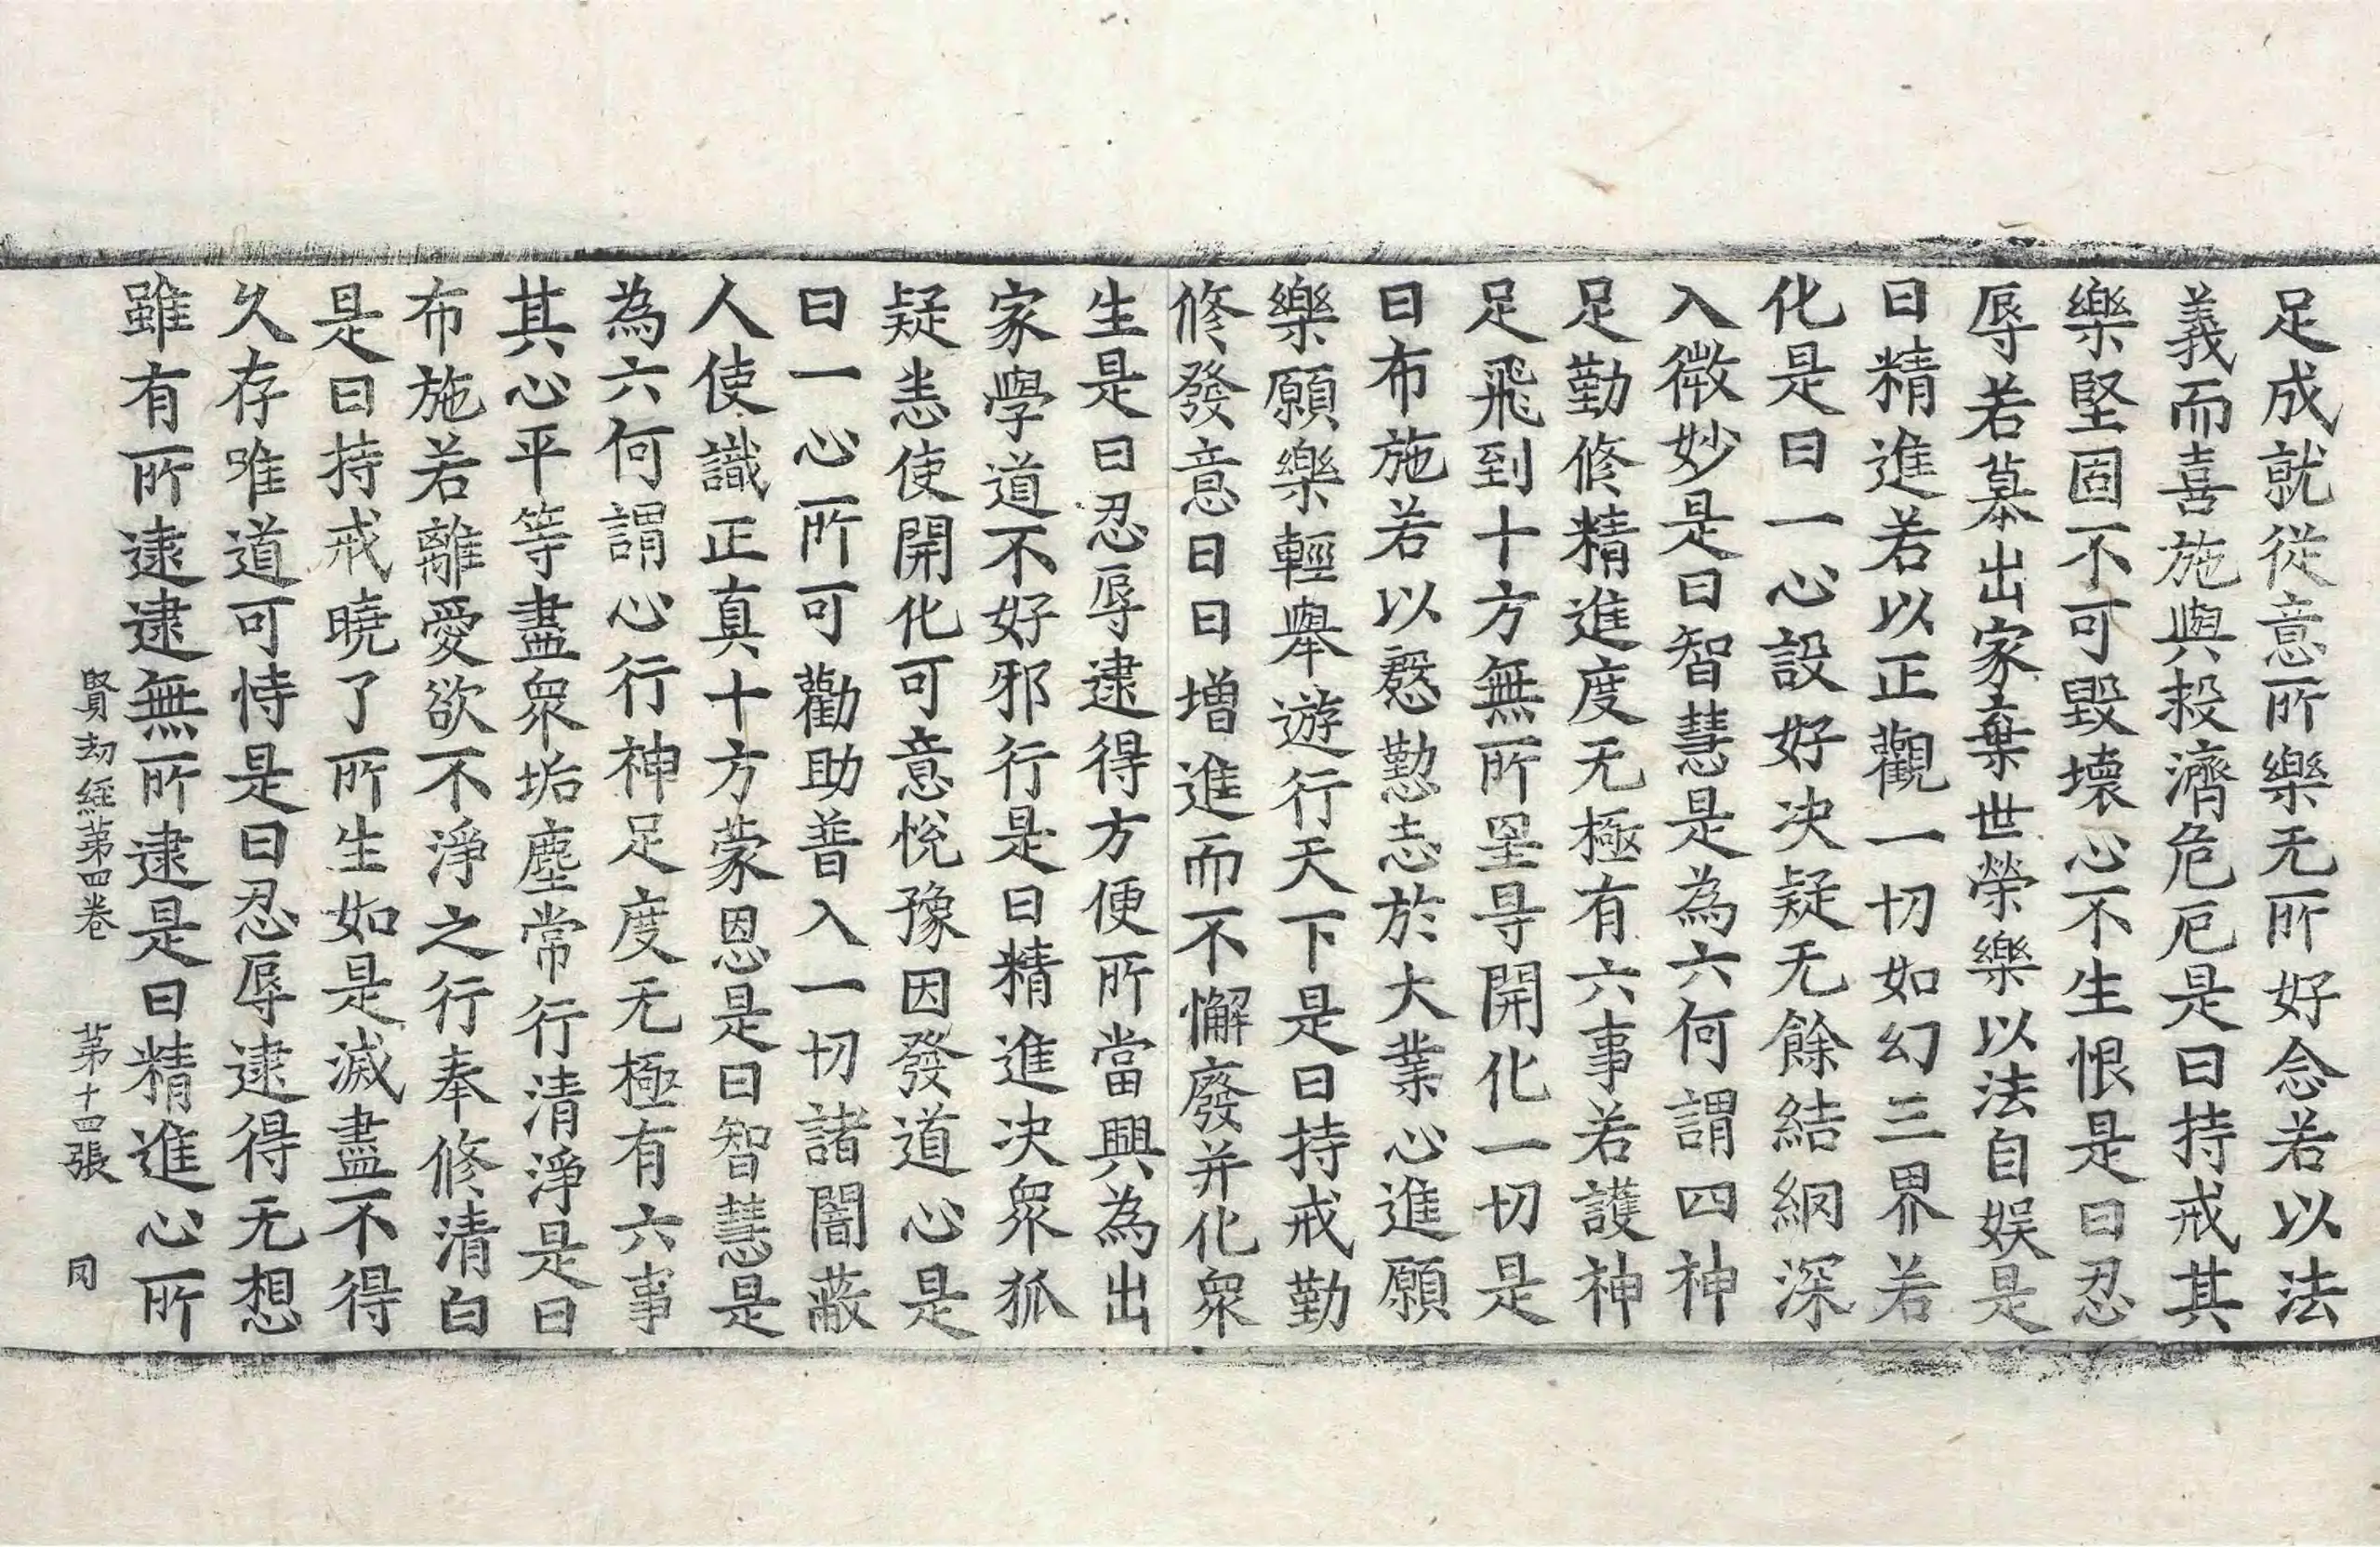 足成就從意所樂无所好念若以法
義而喜施與救濟危厄是曰持戒其
樂堅固不可毀壞心不生恨是曰忍
辱若慕出家棄世榮樂以法自娛是
曰精進若以正觀一切如幻三界若
化是曰一心設好决疑无餘結網深
入微妙是曰智慧是為六何謂四神
足勤修精進度无極有六事若護神
足飛到十方無所罣㝵開化一切是
曰布施若以慇懃志於大業心進願
樂願樂輕舉遊行天下是曰持戒勤
修發意日日增進而不懈廢并化衆
生是曰忍辱逮得方便所當興為出
家學道不好邪行是曰精進决衆狐
疑恚使開化可意悅豫因發道心是
曰一心所可勸助普入一切諸闇蔽
人使識正真十方蒙恩是曰智慧是
為六何謂心行神足度无極有六事
其心平等盡衆垢塵常行清淨是曰
布施若離愛欲不淨之行奉修清白
是曰持戒曉了所生如是滅盡不得
久存唯道可恃是曰忍辱逮得无想
雖有所逮逮無所逮是曰精進心所
賢劫經苐四卷 苐十四張 同